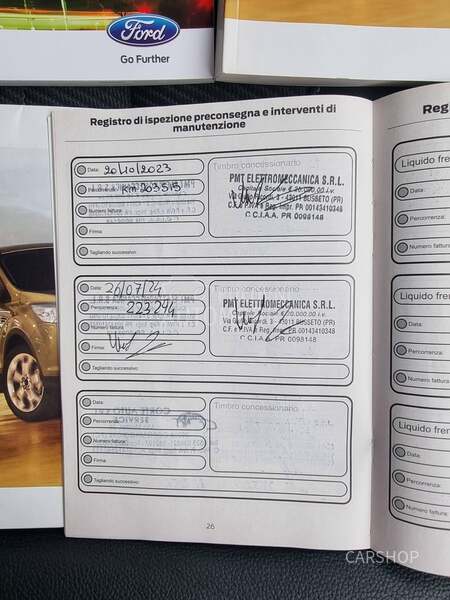 Ford
Go Further
Registro di ispezione preconsegna e interventi di
manutenzione
Data: 20/10/2023
Percorrenza: Km 203515
Numero fattura:
Firma:
Tagliando successivo:
Timbro concessionario
PMT ELETTROMECCANICA S.R.L.
Capitale Sociale € 20.000,00 i.v.
43011 BUSSETO (PR)
C.F. e P.IVA e Reg. Impr. PR 00143410348
C.C.I.A.A. PR 0098148
Data: 26/07/24
Percorrenza: 223244
Numero fattura:
Firma:
Tagliando successivo:
Timbro concessionario
PMT ELETTROMECCANICA S.R.L.
Capitale Sociale € 20.000,00 i.v.
43011 BUSSETO (PR)
C.F. e P.IVA e Reg. Impr. PR 00143410348
C.C.I.A.A. PR 0098148
Data:
Percorrenza:
Numero fattura:
Firma:
Tagliando successivo:
Timbro concessionario
26
Reg
Liquido fre
Data:
Percorrenza:
Numero fattura
Liquido fren
Data:
Percorrenza:
Numero fattura:
Liquido fren
Data:
Percorrenza:
Numero fattura:
CARSHOP